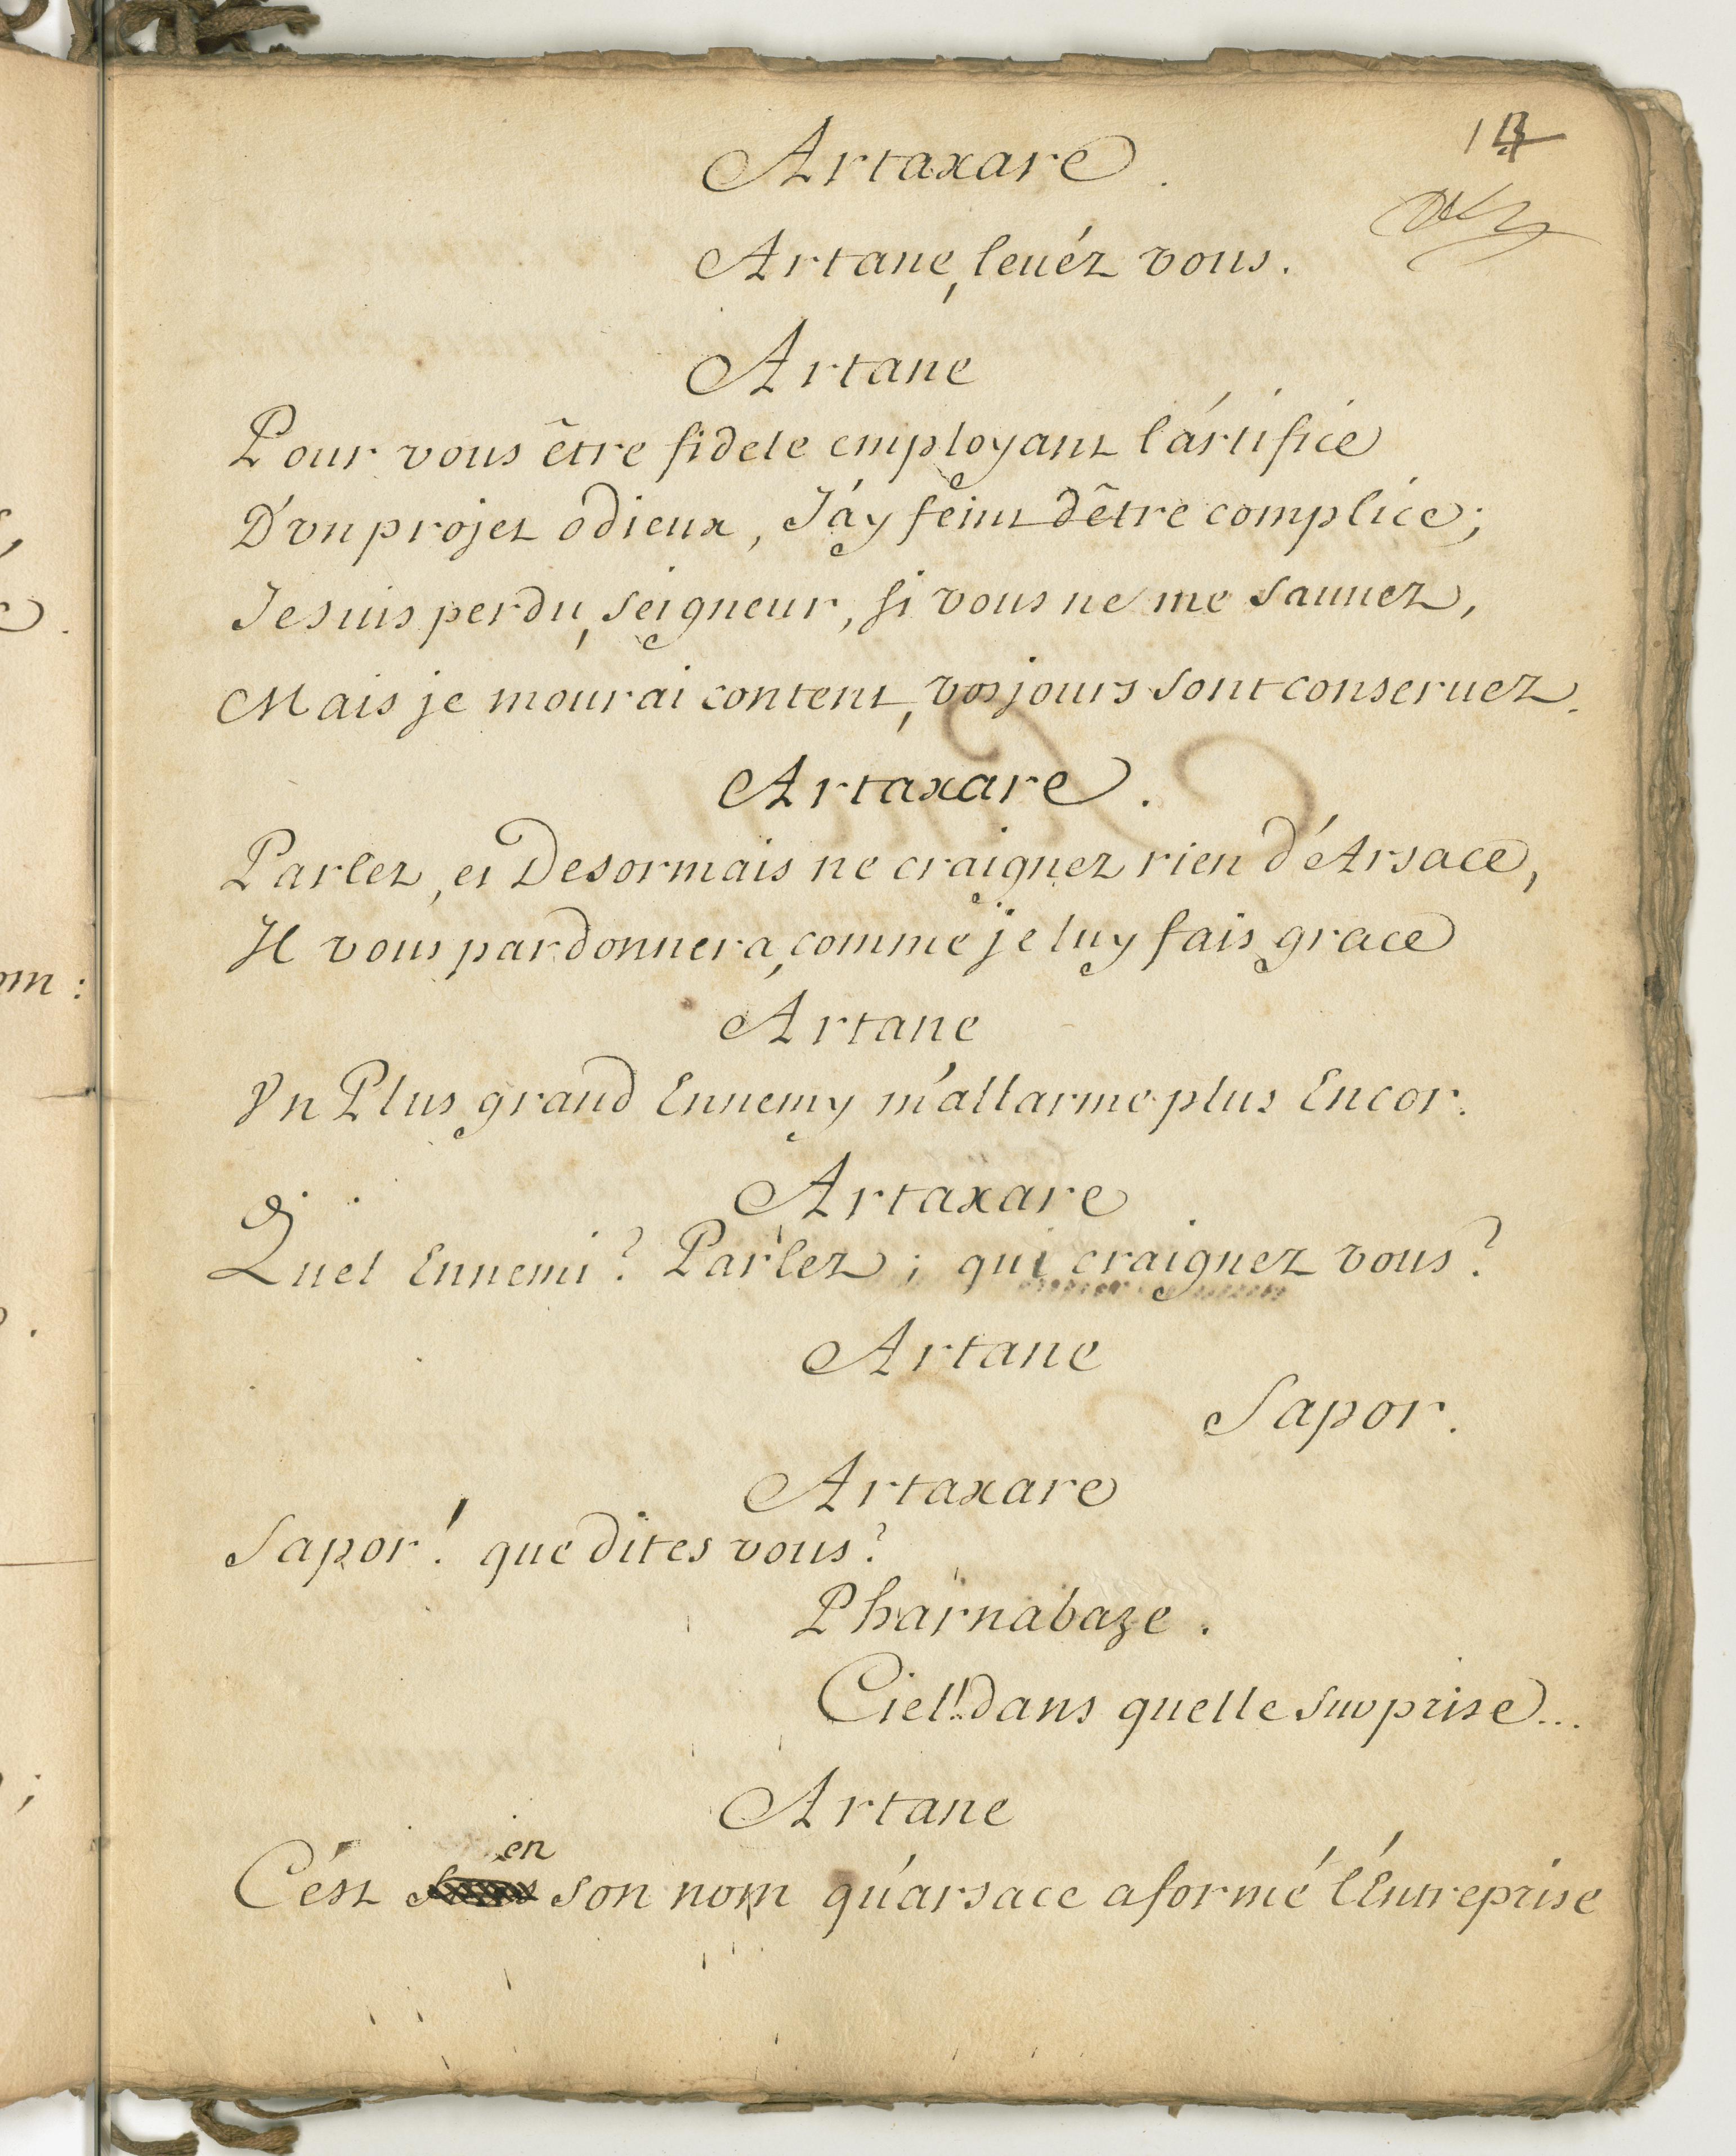 Artaxare.
Artane, leuéz vous.
Artane
Pour vous être fidele employant l'ártifice
D'vn projet odieux, J'áy feint d'être complice;
Je suis perdu, seigneur, si vous ne me sauuez,
Mais je mourai content, vos jours sont conseruez.
Artaxare.
Parlez, et Desormais ne craignez rien d'Arsace,
Il vous pardonnera, comme je luy fais grace
Artane
Vn Plus grand Ennemy m'allarme plus Encor.
Artaxare
Quel Ennemi? Parlez; qui craignez vous?
Artane
Sapor.
Artaxare
Sapor! que dites vous?
Pharnabaze.
Ciel! dans quelle surprise...
Artane
en
C'ést son nom qu'arsace a formé l'Entreprise